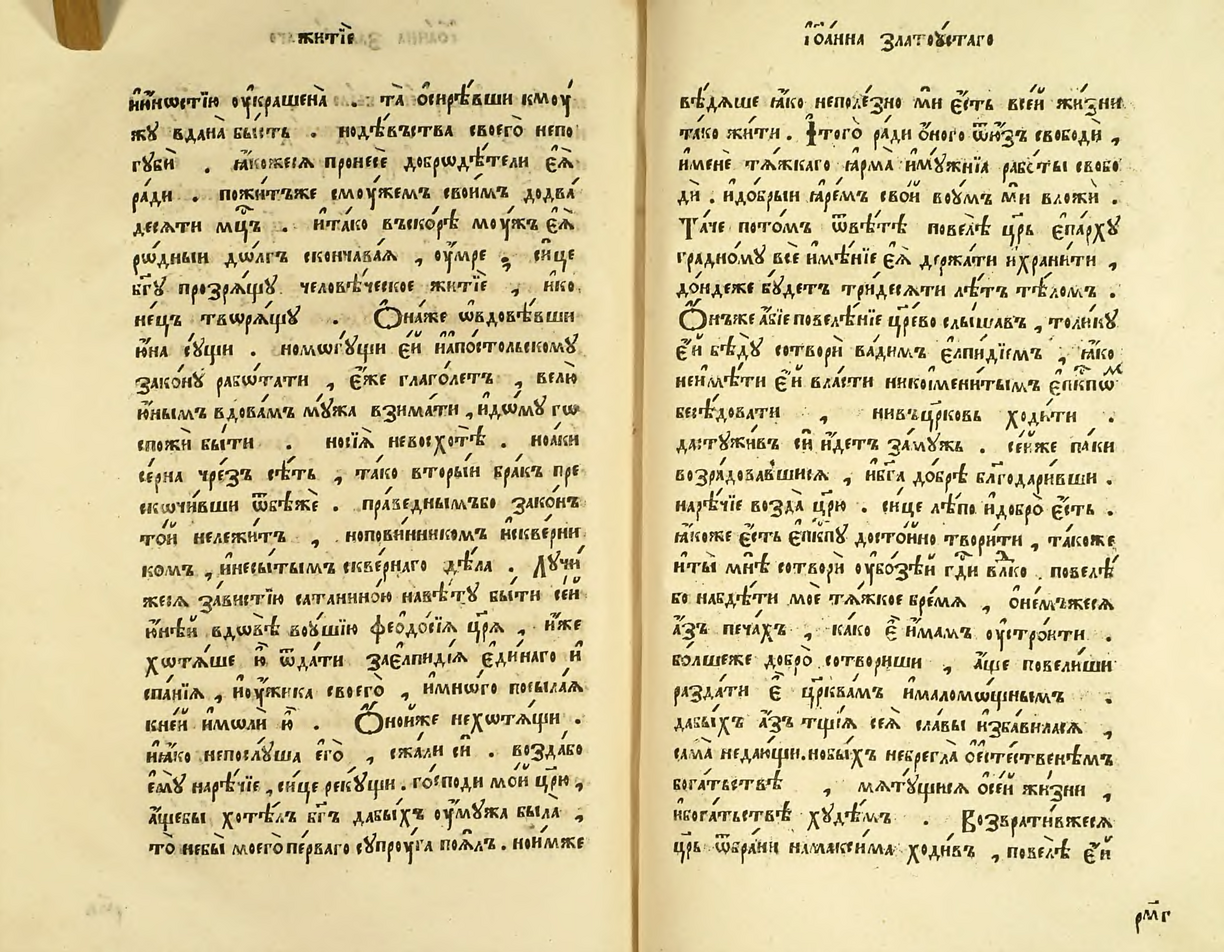 житїе
и҆нѡстїю оу҆крашена̀ . та̀ ѻ҆сирѣ́вши кмоу
жꙋ̀ вдана̀ бы́сть . нодѣ́въства своего̀ непо
гꙋбѝ . ꙗ҆́коже сѧ̀ пронесѐ добрѡдѣ́тели є҆ѧ̀
ради . пожи́тъже смоу́жемъ свои́мъ додва̀
десѧти мц҃ъ . и҆та́ко въско́рѣ моу́жъ є҆ѧ̀
рѡ́дныи дѡ́лгъ сконча́ваѧ , оу҆́мре , си́це
бг҃ꙋ прозрѧ́щꙋ человѣ́ческое житїѐ , и҆ко
не́цъ творѧ́щꙋ . Ѻ҆на́же ѡ҆вдовѣ́вши
ю҆́на сꙋ́щи . номѡгꙋ́щи є҆́й и҆а҆по́стольскомꙋ
зако́нꙋ рабо́тати , є҆́же глаго́летъ , велю̀
ю҆́нымъ вдова́мъ мꙋ́жа взима́ти , и҆до́мꙋ го
спожи̑ бы́ти . носїѧ̀ невосхотѣ̀ . ноа҆́ки
се́рна чре́зъ сѣ́ть , та́ко вторы́и бра́къ пре
скочивши ѿбѣжѐ . пра́веднымъбо зако́нъ
то́й нележи́тъ , ноповинникомъ и҆скверни
комъ , и҆несы́тымъ скве́рнаго дѣ́ла . Лꙋчи́
жесѧ за́вистїю сатаниною навѣ́тꙋ бы́ти се́и
ю҆́нѣй вдовѣ̀ воу҆́шїю ѳеодо́сїѧ цр҃ѧ̀ , и҆́же
хотѧ́ше ю҆̀ ѿда́ти заелпиді́ѧ є҆ди́наго и҆
спа́нїѧ , и҆оу҆́жика своего̀ , и҆мно́го посыла́ѧ
кне́й и҆молѝ ю҆̀ . Ѻ҆но́йже нехотѧ́щи .
и҆ꙗ҆́ко непослꙋ́ша є҆го̀ , сжа́ли си̑ . возда́бо
є҆мꙋ̀ наре́чїе , си́це рекꙋ́щи . го́споди мо́й цр҃ю̀ ,
а҆́щебы хотѣ́лъ бг҃ъ дабы́хъ оу҆мꙋ́жа была̀ ,
то̀ небы̀ моего̀ пе́рваго сꙋпрꙋ́га поѧ́лъ . нои́мже
і҆ѡа́нна златоꙋ́стаго
вѣ́дѧше ꙗ҆́ко неполе́зно мѝ є҆́сть все́й жи́зни
та́ко жи́ти . и҆того̀ ра́ди ѻ҆́ного ѿю҆́зъ свободѝ ,
и҆́мене тѧ́жкаго ꙗ҆рма̀ и҆мꙋ́жнїѧ рабо́ты свобо
дѝ . и҆до́брыи ꙗ҆ре́мъ сво́й воу҆́мъ мѝ вложѝ .
Та́че пото́мъ ѿвѣ́тѣ повелѣ̀ цр҃ь є҆па́рхꙋ
градно́мꙋ всѐ и҆мѣ́нїе є҆ѧ̀ держа́ти и҆храни́ти ,
до́ндеже бꙋ́детъ три́десѧти лѣ́тъ тѣ́ломъ .
Ѻ҆́нъже а҆́бїе повелѣ́нїе цр҃ево слы́шавъ , толи́кꙋ
є҆́й бѣ́дꙋ сотворѝ вади́мъ є҆лпиді́емъ , ꙗ҆́ко
неи҆мѣ́ти є҆́й вла́сти никоименитымъ є҆пⷭ҇кпѡⷨ
бесѣ́довати , нивъцр҃ковь ходи́ти .
дастꙋжи́въ си̑ и҆́детъ за́мꙋжь . се́йже па́ки
возра́довавшисѧ , и҆бг҃а до́брѣ благодари́вши .
наре́чїе возда̀ цр҃ю̀ . си́це лѣ́по и҆добро̀ є҆́сть .
ꙗ҆́коже є҆́сть є҆пⷭ҇кпꙋ досто́йно твори́ти , та́коже
и҆ты̀ мнѣ̀ сотворѝ оу҆бо́зѣй гдⷭ҇и влⷣко . повелѣ̀
бо набдѣ́ти моѐ тѧ́жкое бре́мѧ , ѻ҆не́мъжесѧ
а҆́зъ печа́хъ , ка́ко є҆̀ и҆́мамъ оу҆стро́ити .
бо́лшеже добро̀ сотвори́ши , а҆́ще повели́ши
разда́ти є҆̀ цр҃ква́мъ и҆маломо́щнымъ .
дабы́хъ а҆́зъ тщі́ѧ сеѧ̀ сла́вы и҆зба́виласѧ ,
сама̀ недаю́щи . нобы́хъ небрегла̀ ѻ҆есте́ственѣмъ
бога́тьствѣ , мѧтꙋ́щисѧ ѻ҆се́й жи́зни ,
и҆бога́тьствѣ хꙋдѣ́мъ . Возврати́вжесѧ
цр҃ь ѿбра́ни намаѯи́ма ходи́въ , повелѣ̀ є҆́й
рм҃г